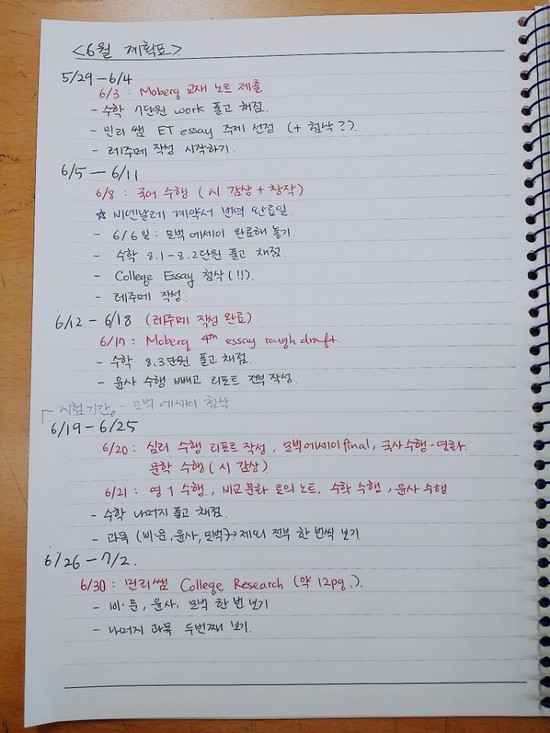 <6월 계획표>
5/29 - 6/4
6/3 : Moberg 교재 노트 제출
- 수학 7단원 work 풀고 채점.
- 민리 쌤 ET essay 주제 선정 (+ 첨삭?).
- 레주메 작성 시작하기.
6/5 - 6/11
6/8 : 국어 수행 (시 감상 + 창작)
☆ 비엔날레 계약서 번역 완료일
- 6/6일 : 모벅 에세이 완료해 놓기.
- 수학 8.1 - 8.2단원 풀고 채점.
- College Essay 첨삭(!!).
- 레주메 작성.
6/12 - 6/18 (레주메 작성 완료)
6/17 : Moberg 4th essay rough draft.
- 수학 8.3단원 풀고 채점.
- 윤사 수행 빼고 리포트 전부 작성.
시험기간 - 모벅 에세이 첨삭
6/19 - 6/25
6/20 : 심리 수행 리포트 작성, 모벅에세이 final, 국사수행-영화
문학 수행 (시 감상)
6/21 : 영 1 수행, 비교문화 토의 노트, 수학 수행, 윤사 수행
- 수학 나머지 풀고 채점.
- 과목 (비·문, 윤사, 모벅) → 제외 전부 한 번씩 보기
6/26 - 7/2.
6/30 : 민리쌤 College Research (약 12pg.).
- 비·문, 윤사, 모벅 한 번 보기
- 나머지 과목 두번째 보기.